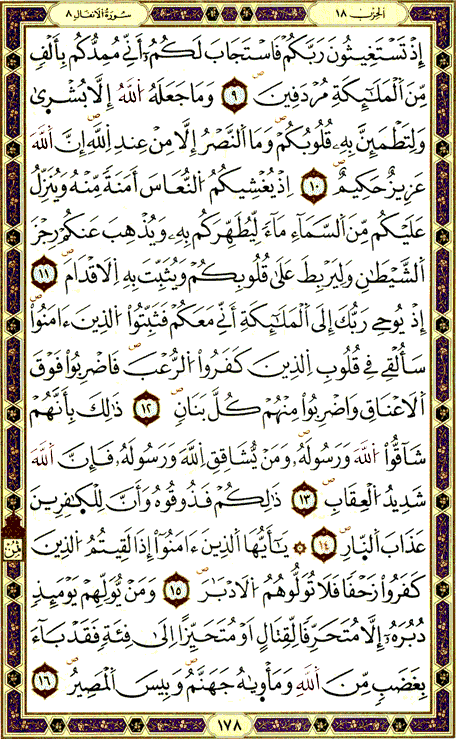 الحزب ١٨
سورة الأنفال ٨
إِذْ تَسْتَغِيثُونَ رَبَّكُمْ فَاسْتَجَابَ لَكُمُۥٓ أَنِّے مُمِدُّكُم بِأَلْفٖ
مِّنَ اَ۬لْمَلَٰٓئِكَةِ مُرْدَفِينَۖ ٩ وَمَا جَعَلَهُ اُ۬للَّهُ إِلَّا بُشْر۪ىٰ
وَلِتَطْمَئِنَّ بِهِۦ قُلُوبُكُمْۖ وَمَا اَ۬لنَّصْرُ إِلَّا مِنْ عِندِ اِ۬للَّهِۖ إِنَّ اَ۬للَّهَ
عَزِيزٌ حَكِيمٌۖ ١٠ اِذْ يُغْشِيكُمُ اُ۬لنُّعَاسَ أَمَنَةٗ مِّنْهُ وَيُنَزِّلُ
عَلَيْكُم مِّنَ اَ۬لسَّمَآءِ مَآءٗ لِّيُطَهِّرَكُم بِهِۦ وَيُذْهِبَ عَنكُمْ رِجْزَ
اَ۬لشَّيْطَٰنِ وَلِيَرْبِطَ عَلَىٰ قُلُوبِكُمْ وَيُثَبِّتَ بِهِ اِ۬لَاقْدَامَۖ ١١
إِذْ يُوحِے رَبُّكَ إِلَى اَ۬لْمَلَٰٓئِكَةِ أَنِّے مَعَكُمْ فَثَبِّتُواْ اُ۬لذِينَ ءَامَنُواْۖ
سَأُلْقِے فِے قُلُوبِ اِ۬لذِينَ كَفَرُواْ اُ۬لرُّعْبَۖ فَاضْرِبُواْ فَوْقَ
اَ۬لَاعْنَاقِ وَاضْرِبُواْ مِنْهُمْ كُلَّ بَنَانٖۖ ١٢ ذَٰلِكَ بِأَنَّهُمْ
شَآقُّواْ اُ۬للَّهَ وَرَسُولَهُۥۖ وَمَنْ يُّشَاقِقِ اِ۬للَّهَ وَرَسُولَهُۥ فَإِنَّ اَ۬للَّهَ
شَدِيدُ اُ۬لْعِقَابِۖ ١٣ ذَٰلِكُمْ فَذُوقُوهُ وَأَنَّ لِلْكٰ۪فِرِينَ
عَذَابَ اَ۬لنّ۪ارِۖ ١٤ يَٰٓأَيُّهَا اَ۬لذِينَ ءَامَنُوٓاْ إِذَا لَقِيتُمُ اُ۬لذِينَ
كَفَرُواْ زَحْفٗا فَلَا تُوَلُّوهُمُ اُ۬لَادْبَٰرَۖ ١٥ وَمَنْ يُّوَلِّهِمْ يَوْمَئِذٖ
دُبُرَهُۥٓ إِلَّا مُتَحَرِّفٗا لِّقِتَالٍ اَوْ مُتَحَيِّزاً اِلَىٰ فِئَةٖ فَقَدْ بَآءَ
بِغَضَبٖ مِّنَ اَ۬للَّهِ وَمَأْو۪يٰهُ جَهَنَّمُ وَبِيسَ اَ۬لْمَصِيرُۖ ١٦
ثمن
١٧٨